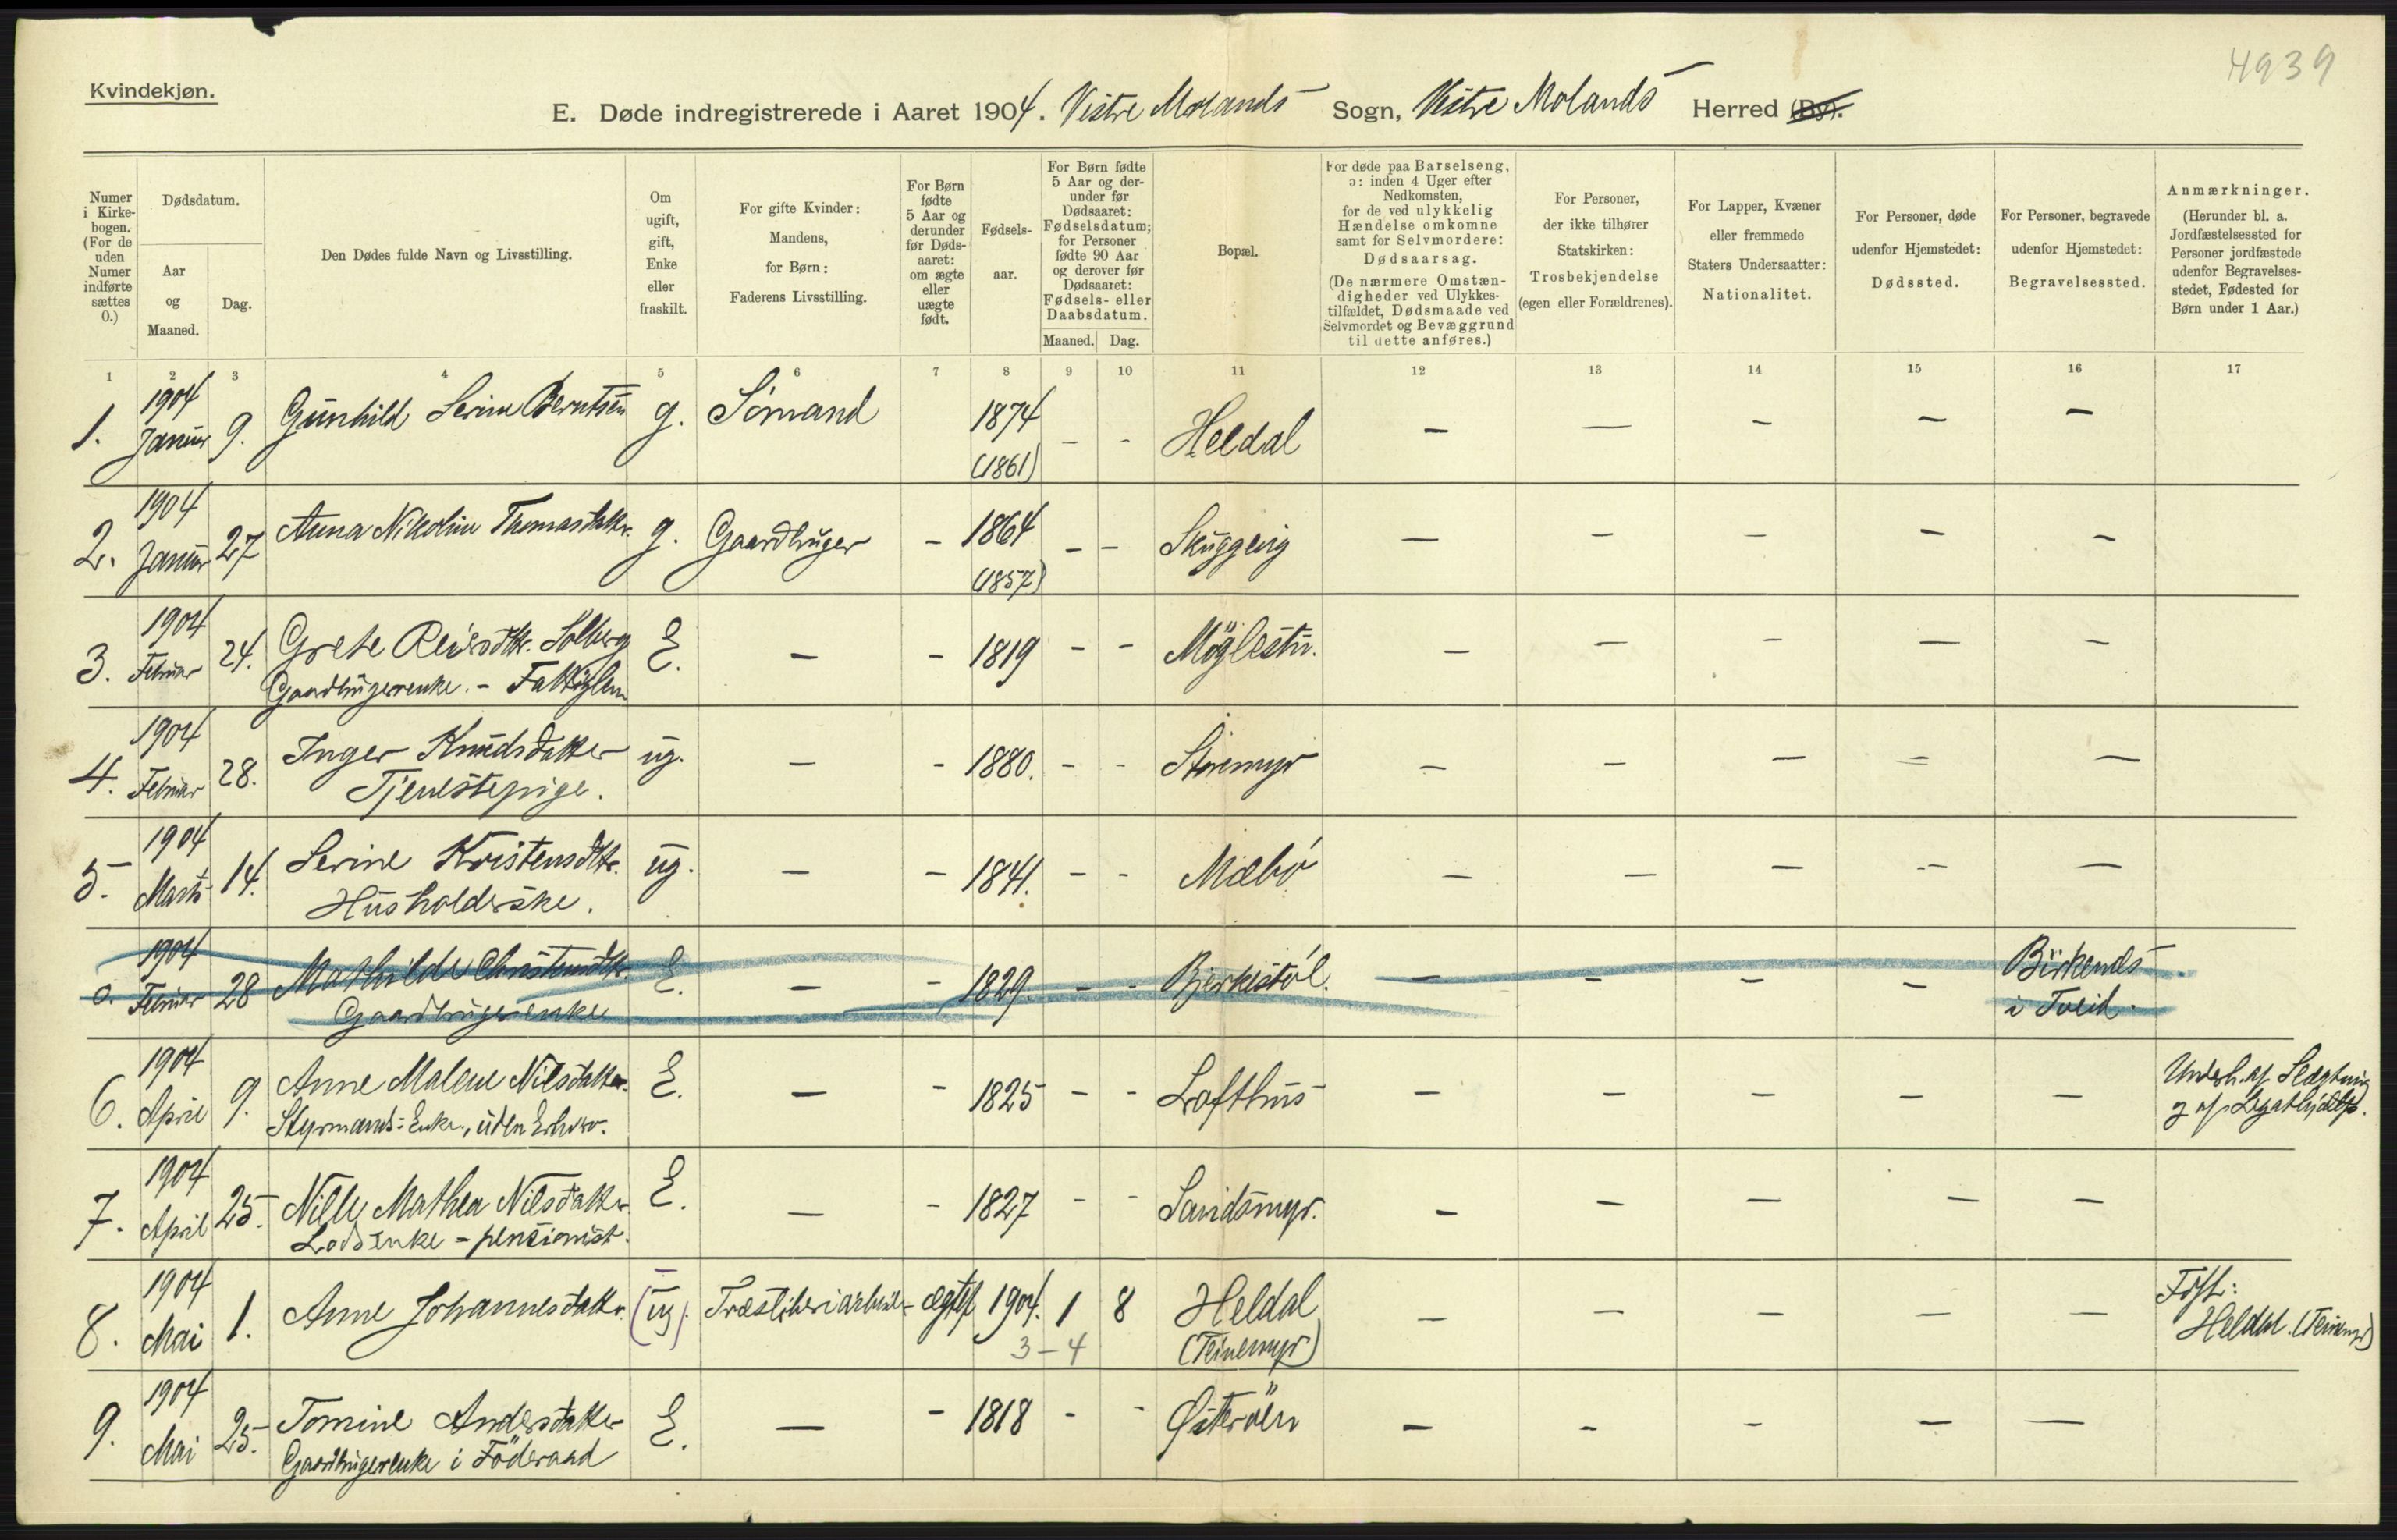 4939
Kvindekjøn.
E. Døde indregistrerede i Aaret 1904. Vestre Molands Sogn, Vestre Molands Herred (By).
Numer i Kirke- bogen. (For de uden Numer indførte sættes 0.)
Dødsdatum.
Aar og Maaned.
Dag.
Den Dødes fulde Navn og Livsstilling.
Om ugift, gift, Enke eller fraskilt.
For gifte Kvinder: Mandens, for Børn: Faderens Livsstilling.
For Børn fødte 5 Aar og derunder før Døds- aaret: om ægte eller uægte født.
Fødsels- aar.
For Børn fødte 5 Aar og der- under før Dødsaaret: Fødselsdatum; for Personer fødte 90 Aar og derover før Dødsaaret: Fødsels- eller Daabsdatum.
Maaned. Dag.
Bopæl.
For døde paa Barselseng, ɔ: inden 4 Uger efter Nedkomsten, for de ved ulykkelig Hændelse omkomne samt for Selvmordere: Dødsaarsag. (De nærmere Omstæn- digheder ved Ulykkes- tilfældet, Dødsmaade ved Selvmordet og Bevæggrund til dette anføres.)
For Personer, der ikke tilhører Statskirken: Trosbekjendelse (egen eller Forældrenes).
For Lapper, Kvæner eller fremmede Staters Undersaatter: Nationalitet.
For Personer, døde udenfor Hjemstedet: Dødssted.
For Personer, begravede udenfor Hjemstedet: Begravelsessted.
Anmærkninger. (Herunder bl. a. Jordfæstelsessted for Personer jordfæstede udenfor Begravelses- stedet, Fødested for Børn under 1 Aar.)
1 2 3 4 5 6 7 8 9 10 11 12 13 14 15 16 17
1. 1904 Januar 9. Gunhild Serine Berntsen g. Sömand 1874 - - Heldal - - - - -
(1861)
2. 1904 Januar 27 Anna Nikoline Thomasdatter g. Gaardbruger - 1864 - - Skuggevig - - - - -
(1857)
3. 1904 Februar 24. Grete Reiersdtr. Solberg E. - - 1819 - - Möglestu. - - - - -
Gaardbrugerenke. - Fattiglem
4. 1904 Februar 28. Inger Knudsdatter ug. - - 1880. - - Storemyr - - - - -
Tjenestepige.
5. 1904 Marts 14. Serine Kristensdtr. ug. - - 1841. - - Mæbö - - - - -
Husholderske.
0. 1904 Februar 28 Mathilde Christensdtr E. - - 1829. - - Bjerkestöl. - - - - Birkenes
Gaardbrugerenke i Tveid.
6. 1904 April 9. Anne Malene Nilsdatter E. - - 1825 - - Lofthus - - - - - Underh. af Slægtning
Styrmands-Enke, uden Erhverv. g af Legathjælp.
7. 1904 April 25. Nille Mathea Nilsdatter E. - - 1827 - - Sandsmyr. - - - - -
Lodsenke - pensionist.
8. 1904 Mai 1. Anne Johannesdatter (ug). Træsliberiarbeider ægtef 1904. 1 8 Heldal - - - - - Föst:
3-4 (Teinemyr) Heldal (Teinemyr)
9. 1904 Mai 25. Tomine Andersdatter E. - - 1818 - - Østeröen - - - - -
Gaardbrugerenke i Föderaad